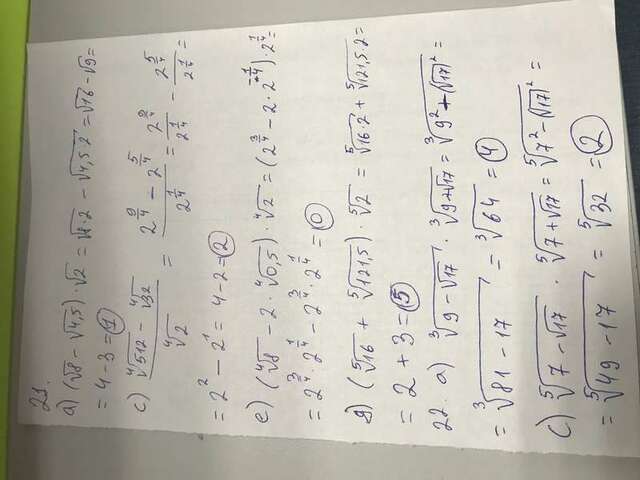 21.
a) (√8 − √4,5) · √2 = √8·2 − √4,5·2 = √16 − √9 =
= 4 − 3 = 1
c) (⁴√512 − ⁴√32) / ⁴√2 = (2^(9/4) − 2^(5/4)) / 2^(1/4) = 2^(9/4) / 2^(1/4) − 2^(5/4) / 2^(1/4) =
= 2² − 2¹ = 4 − 2 = 2
e) (⁴√8 − 2 · ⁴√0,5) · ⁴√2 = (2^(3/4) − 2 · 2^(−1/4)) · 2^(1/4) =
= 2^(3/4) · 2^(1/4) − 2^(3/4) · 2^(1/4) = 0
g) (⁵√16 + ⁵√121,5) · ⁵√2 = ⁵√16·2 + ⁵√121,5·2 =
= 2 + 3 = 5
22. a) ³√(9 − √17) · ³√(9 + √17) = ³√(9² − (√17)²) =
= ³√(81 − 17) = ³√64 = 4
c) ⁵√(7 − √17) · ⁵√(7 + √17) = ⁵√(7² − (√17)²) =
= ⁵√(49 − 17) = ⁵√32 = 2